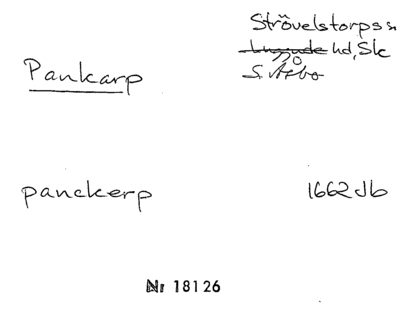 Strövelstorps sn
Luggude hd, Sk
S. Åsbo
Pankarp
panckerp 1662 Jb
Nr 18126